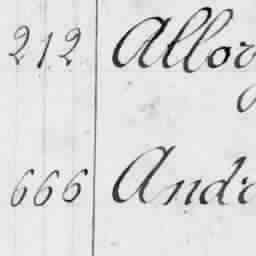 212 Allor
666 Andr